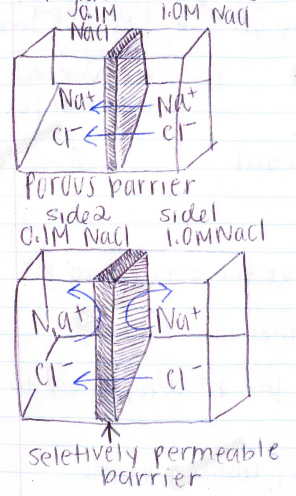 0.1M 1.0M NaCl
NaCl
Na⁺ Na⁺
Cl⁻ Cl⁻
Porous barrier
side2 side1
0.1M NaCl 1.0MNaCl
Na⁺ Na⁺
Cl⁻ Cl⁻
seletively permeable
barrier